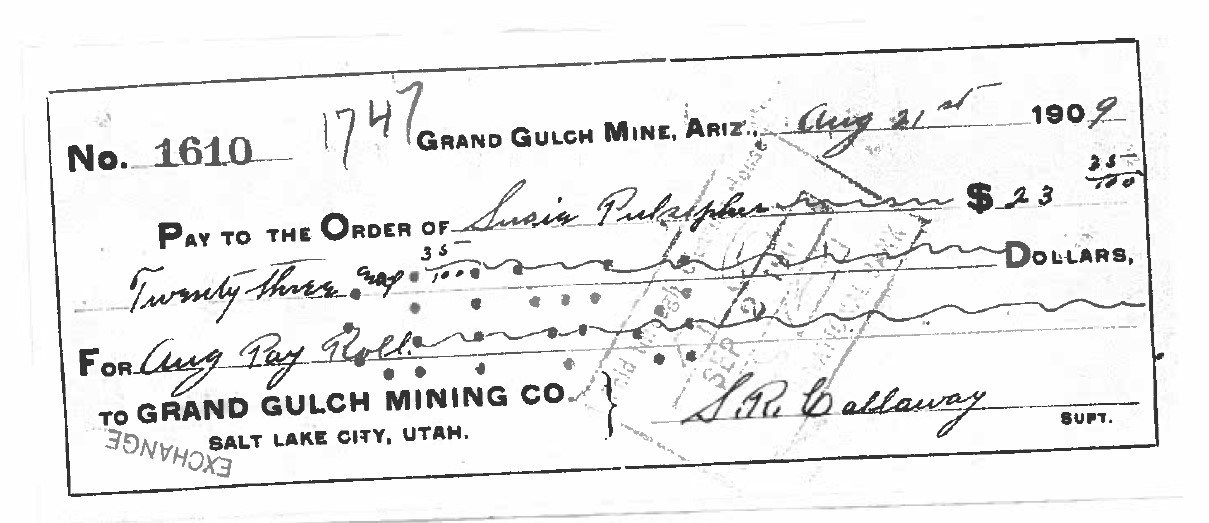 No. 1610 1747 GRAND GULCH MINE, ARIZ., Aug 21st 1909
PAY TO THE ORDER OF Susie Pulsipher $ 23 35/100
Twenty three and 35/100 DOLLARS,
FOR Aug Pay Roll
TO GRAND GULCH MINING CO.
SALT LAKE CITY, UTAH.
S.R. Callaway
SUPT.
EXCHANGE
SEP